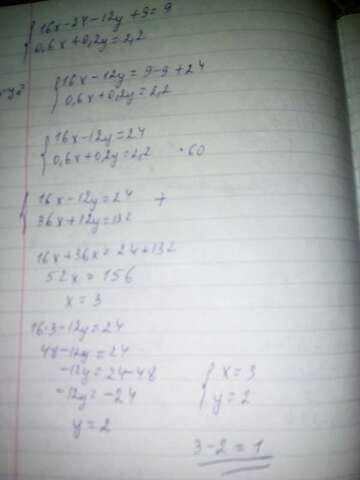 16x-24-12y+9=9
0,6x+0,2y=2,2
16x-12y=9-9+24
0,6x+0,2y=2,2
16x-12y=24
0,6x+0,2y=2,2 ·60
16x-12y=24 +
36x+12y=132
16x+36x=24+132
52x=156
x=3
16·3-12y=24
48-12y=24
-12y=24-48
-12y=-24
y=2
x=3
y=2
3-2=1